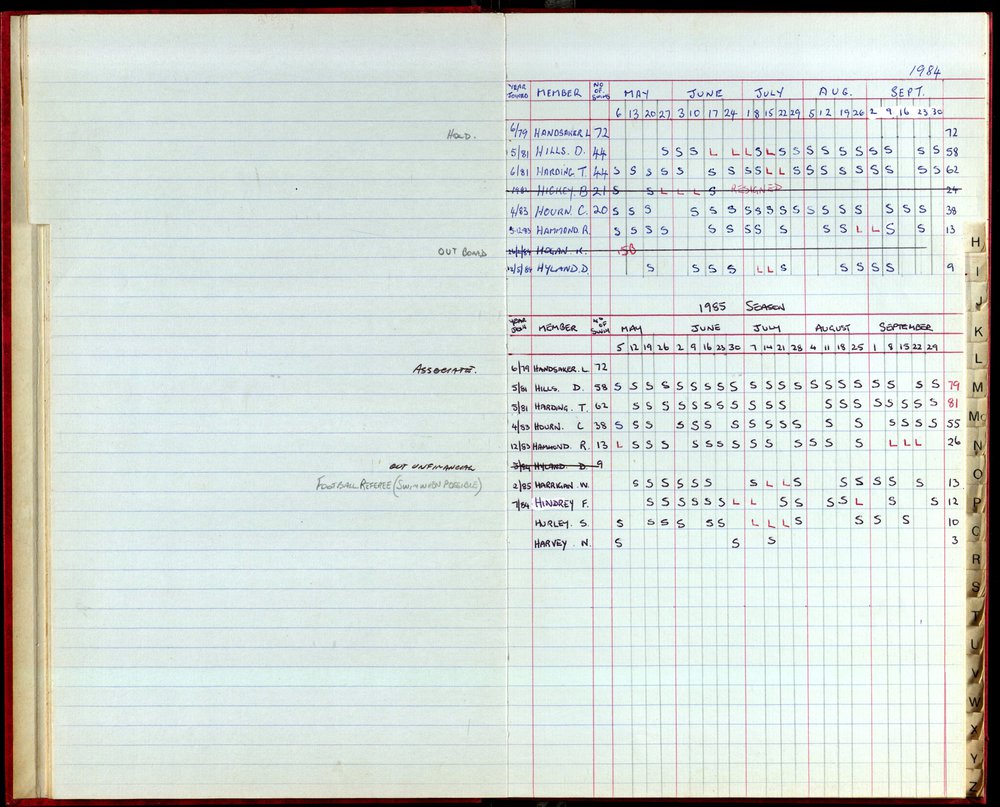 1984
YEAR JOINED MEMBER NO OF SWIMS MAY JUNE JULY AUG. SEPT.
6 13 20 27 3 10 17 24 1 8 15 22 29 5 12 19 26 2 9 16 23 30
HOLD. 6/79 HANDSAKER L 72 72
5/81 HILLS. D. 44 S S S L L L S L S S S S S S S S S S 58
6/81 HARDING T. 44 S S S S S S S S S S L L S S S S S S S S S 62
1982 HICKEY. B 21 S S L L L S RESIGNED 24
4/83 HOURN. C. 20 S S S S S S S S S S S S S S S S S S 38
5-12-83 HAMMOND. R. S S S S S S S S S S L L S S 13
OUT BOMBED HOGAN. K. 58
HYLAND. D. S S S S L L S S S S S 9
1985 SEASON
YEAR MEMBER NO OF SWIM MAY JUNE JULY AUGUST SEPTEMBER
5 12 19 26 2 9 16 23 30 7 14 21 28 4 11 18 25 1 8 15 22 29
ASSOCIATE. 6/79 HANDSAKER. L 72
5/81 HILLS. D. 58 S S S S S S S S S S S S S S S S S S S S S 79
3/81 HARDING. T. 62 S S S S S S S S S S S S S S S S S S S 81
4/83 HOURN. C 38 S S S S S S S S S S S S S S S S S 55
12/83 HAMMOND. R. 13 L S S S S S S S S S S S S S L L L 26
OUT UNFINANCIAL HYLAND D. 9
FOOTBALL REFEREE (SWIM WHEN POSSIBLE) 2/85 HARRIGAN. W. S S S S S S S L L S S S S S S 13
7/84 HINDREY F. S S S S S S L L S S S S L S S 12
HURLEY. S. S S S S S S L L L S S S S 10
HARVEY. N. S S S 3
H
I
J
K
L
M
Mc
N
O
P
Q
R
S
T
U
V
W
X
Y
Z